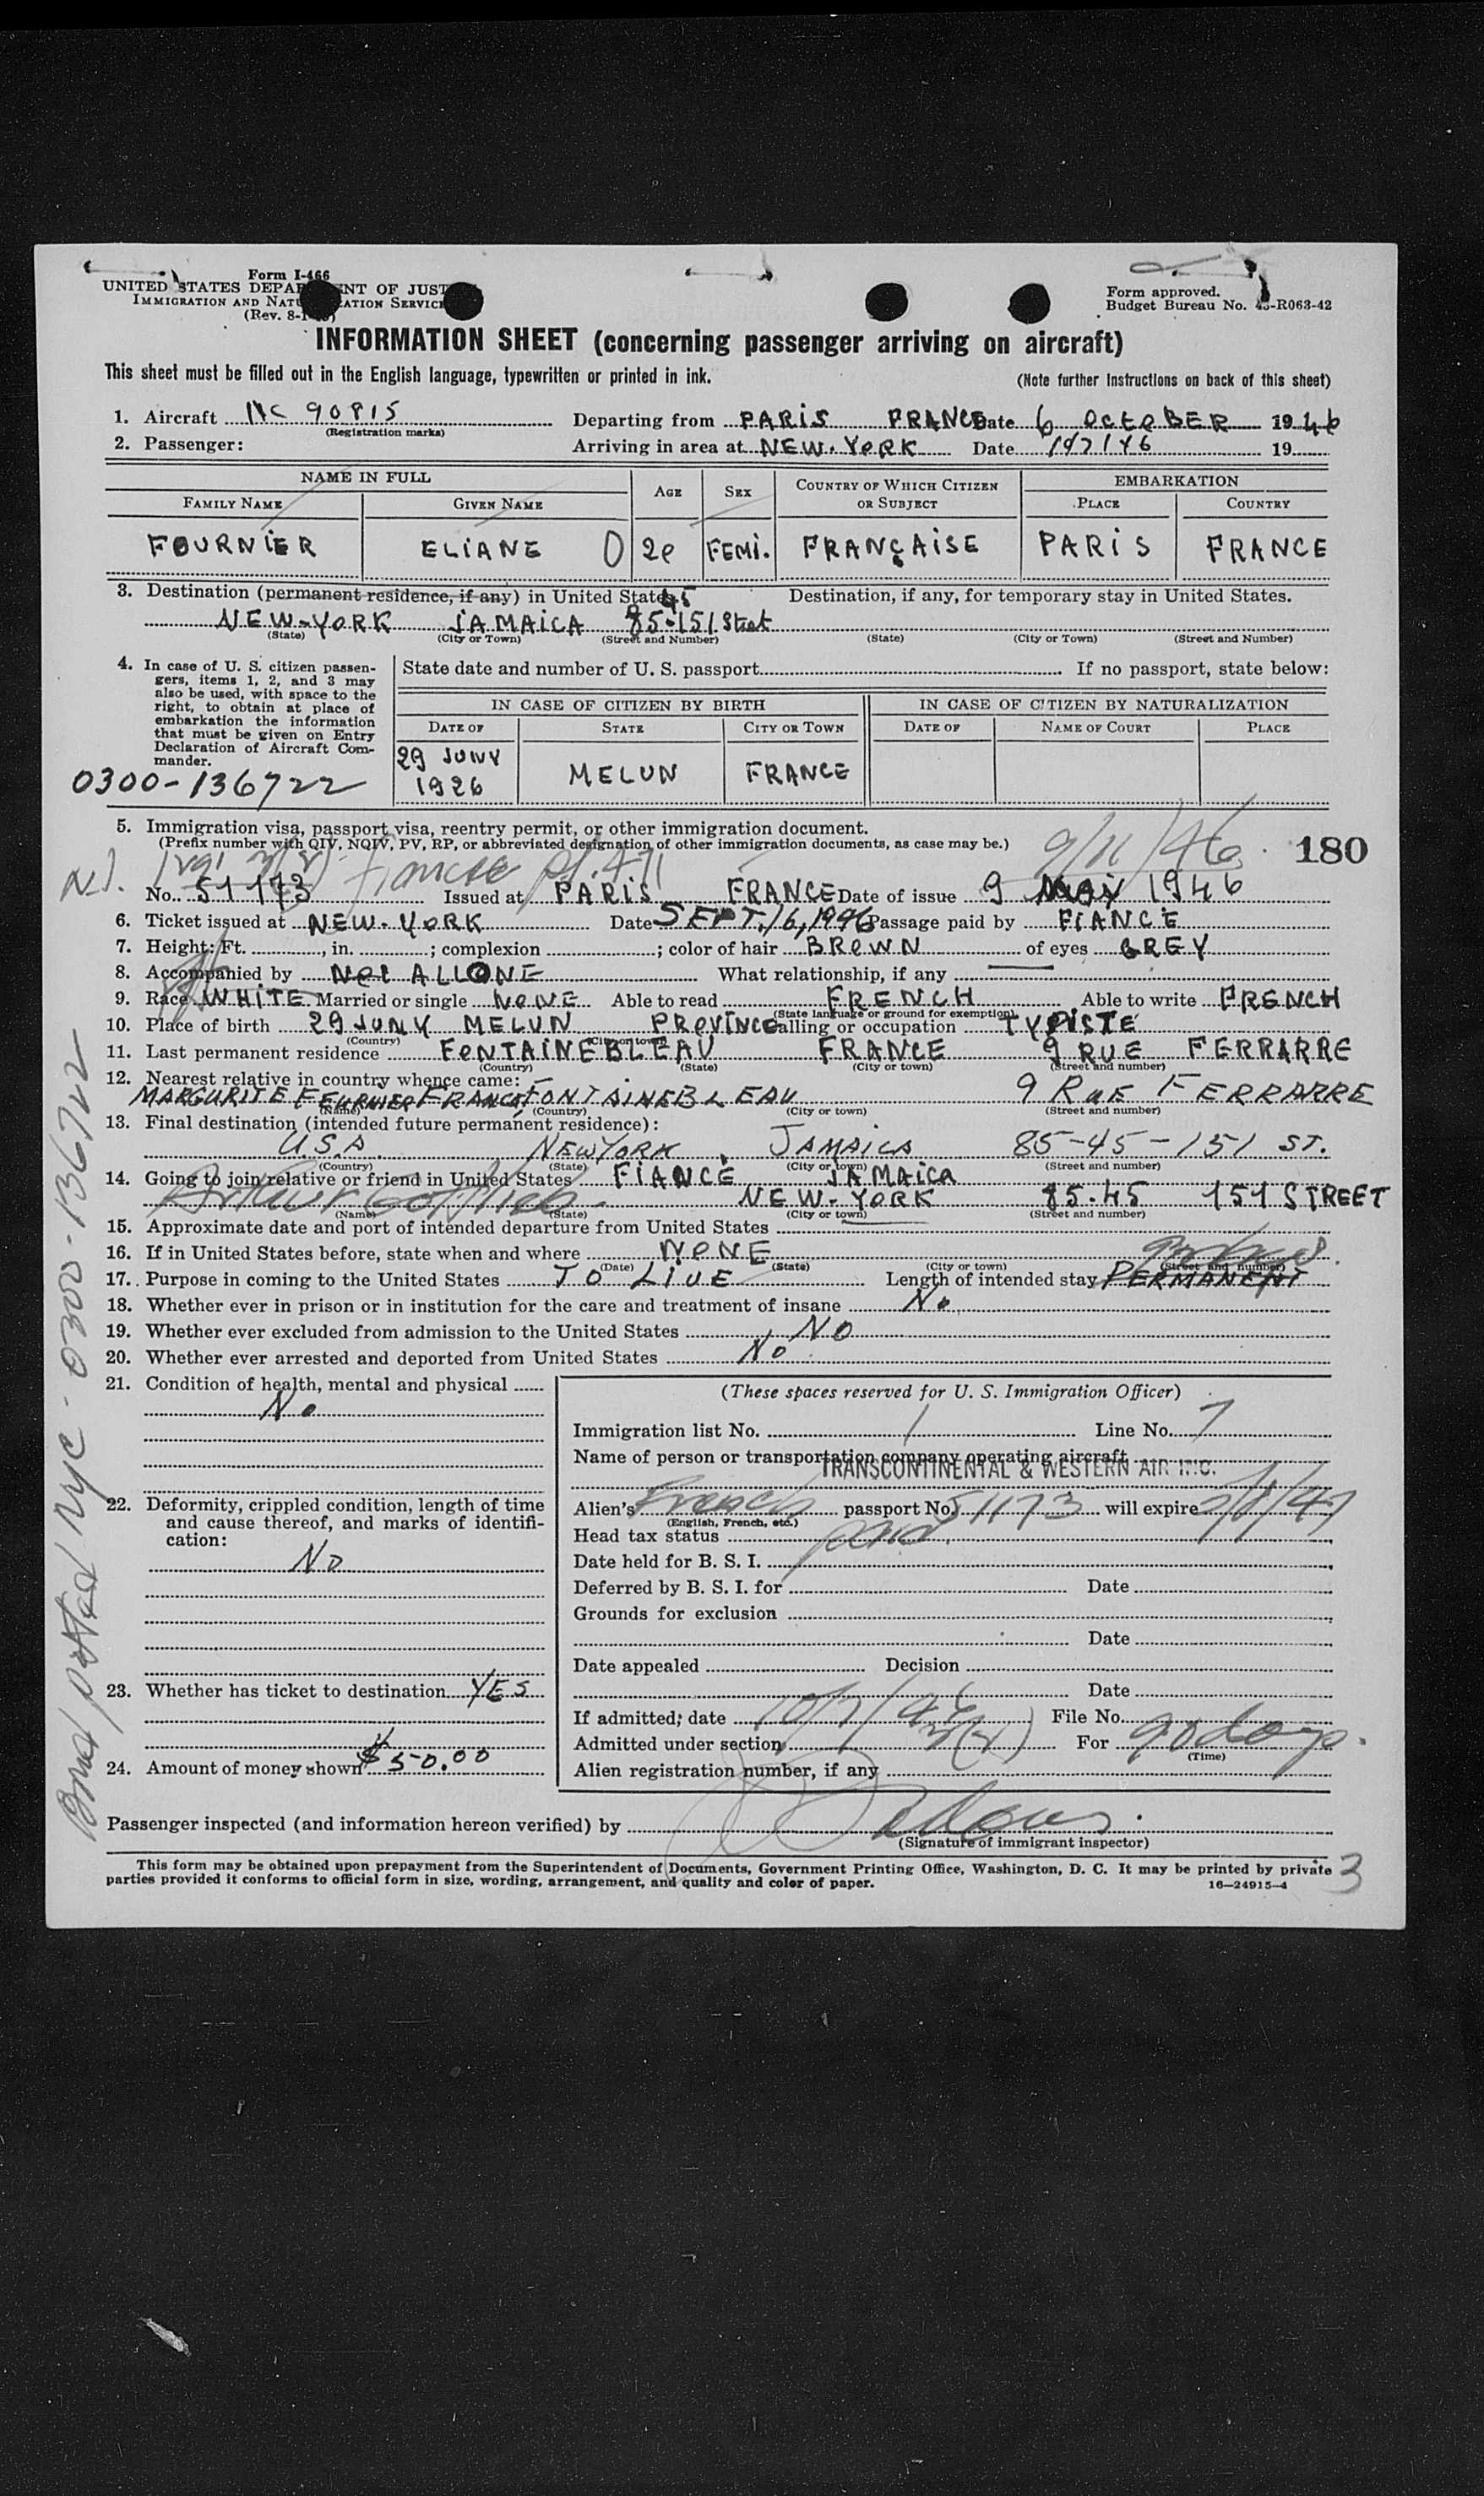 Form I-466
UNITED STATES DEPARTMENT OF JUSTICE
IMMIGRATION AND NATURALIZATION SERVICE
(Rev. 8-1-45)
Form approved.
Budget Bureau No. 43-R063-42
INFORMATION SHEET (concerning passenger arriving on aircraft)
This sheet must be filled out in the English language, typewritten or printed in ink. (Note further instructions on back of this sheet)
1. Aircraft NC 90815 Departing from PARIS FRANCE Date 6 OCTOBER 1946
(Registration marks)
2. Passenger: Arriving in area at NEW-YORK Date 10/7/46 19
NAME IN FULL AGE SEX COUNTRY OF WHICH CITIZEN OR SUBJECT EMBARKATION
FAMILY NAME GIVEN NAME PLACE COUNTRY
FOURNIER ELIANE O 20 FEMI. FRANÇAISE PARIS FRANCE
3. Destination (permanent residence, if any) in United States Destination, if any, for temporary stay in United States.
NEW-YORK JAMAICA 85-45 151 Street
(State) (City or Town) (Street and Number) (State) (City or Town) (Street and Number)
4. In case of U. S. citizen passengers, items 1, 2, and 3 may also be used, with space to the right, to obtain at place of embarkation the information that must be given on Entry Declaration of Aircraft Commander.
State date and number of U. S. passport If no passport, state below:
IN CASE OF CITIZEN BY BIRTH IN CASE OF CITIZEN BY NATURALIZATION
DATE OF STATE CITY OR TOWN DATE OF NAME OF COURT PLACE
29 JUNY 1926 MELUN FRANCE
0300-136722
5. Immigration visa, passport visa, reentry permit, or other immigration document.
(Prefix number with QIV, NQIV, PV, RP, or abbreviated designation of other immigration documents, as case may be.)
3(2) Fiancee Pl. 471 9/11/46 180
No. 51173 Issued at PARIS FRANCE Date of issue 9 MAY 1946
6. Ticket issued at NEW-YORK Date SEPT. 16, 1946 Passage paid by FIANCE
7. Height: Ft. , in. ; complexion ; color of hair BROWN of eyes GREY
8. Accompanied by NOT ALLONE What relationship, if any —
9. Race WHITE Married or single NONE Able to read FRENCH Able to write FRENCH
(State language or ground for exemption)
10. Place of birth 29 JUNY MELUN PROVINCE Calling or occupation TYPISTE
(Country) (City or town)
11. Last permanent residence FONTAINEBLEAU FRANCE 9 RUE FERRARRE
(Country) (State) (City or town) (Street and number)
12. Nearest relative in country whence came:
MARGURITE FOURNIER FRANCE, FONTAINEBLEAU 9 RUE FERRARRE
(Name) (Country) (City or town) (Street and number)
13. Final destination (intended future permanent residence):
U.S.A. NEW YORK, JAMAICA 85-45-151 ST.
(Country) (State) (City or town) (Street and number)
14. Going to join relative or friend in United States FIANCE JAMAICA
Arthur Gottlieb NEW-YORK 85-45 151 STREET
(Name) (State) (City or town) (Street and number)
15. Approximate date and port of intended departure from United States
16. If in United States before, state when and where NONE
(Date) (State) (City or town) (Street and number)
17. Purpose in coming to the United States TO LIVE Length of intended stay PERMANENT
18. Whether ever in prison or in institution for the care and treatment of insane No
19. Whether ever excluded from admission to the United States NO
20. Whether ever arrested and deported from United States No
21. Condition of health, mental and physical
No
22. Deformity, crippled condition, length of time and cause thereof, and marks of identification:
NO
23. Whether has ticket to destination YES
24. Amount of money shown $50.00
(These spaces reserved for U. S. Immigration Officer)
Immigration list No. 1 Line No. 7
Name of person or transportation company operating aircraft
TRANSCONTINENTAL & WESTERN AIR INC.
Alien's French passport No. 51173 will expire 7/8/47
(English, French, etc.)
Head tax status paid
Date held for B. S. I.
Deferred by B. S. I. for Date
Grounds for exclusion
Date
Date appealed Decision
Date
If admitted; date 10/7/46 File No.
Admitted under section 3(2) For 90 days.
(Time)
Alien registration number, if any
Passenger inspected (and information hereon verified) by
(Signature of immigrant inspector)
This form may be obtained upon prepayment from the Superintendent of Documents, Government Printing Office, Washington, D. C. It may be printed by private
parties provided it conforms to official form in size, wording, arrangement, and quality and color of paper. 16—24915-4
3
Bond posted NYC - 0300-136722